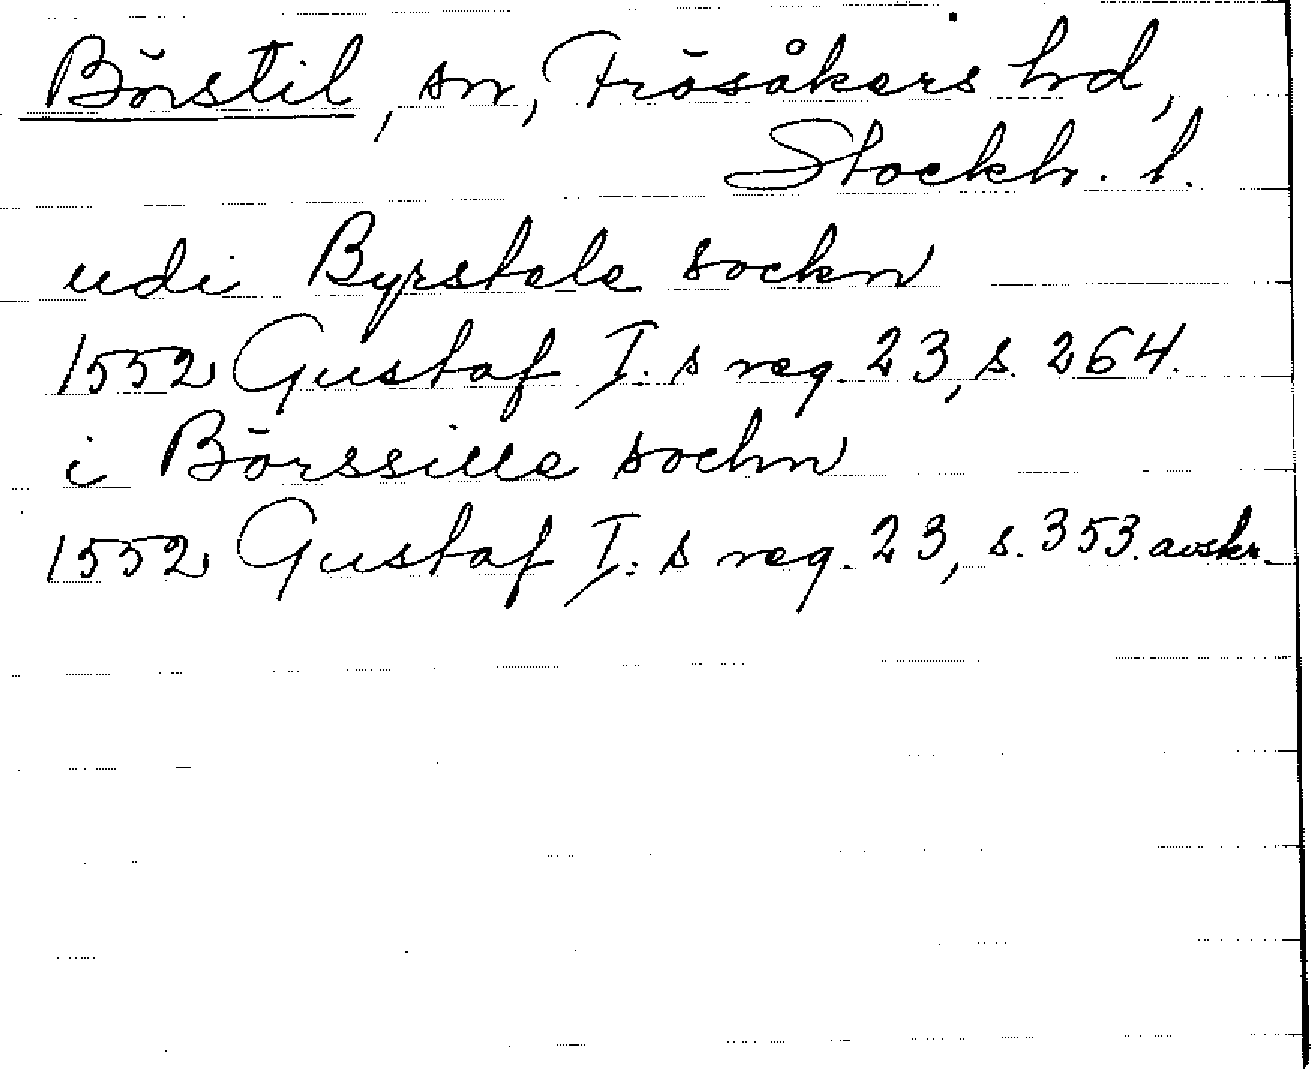 Börstil, sn, Frösåkers hrd,
Stockh. l.
udi Byrstele sockn
1552 Gustaf I. s reg. 23, s. 264.
i Börssille sochn
1552 Gustaf I: s reg. 23, s. 353. avskr.